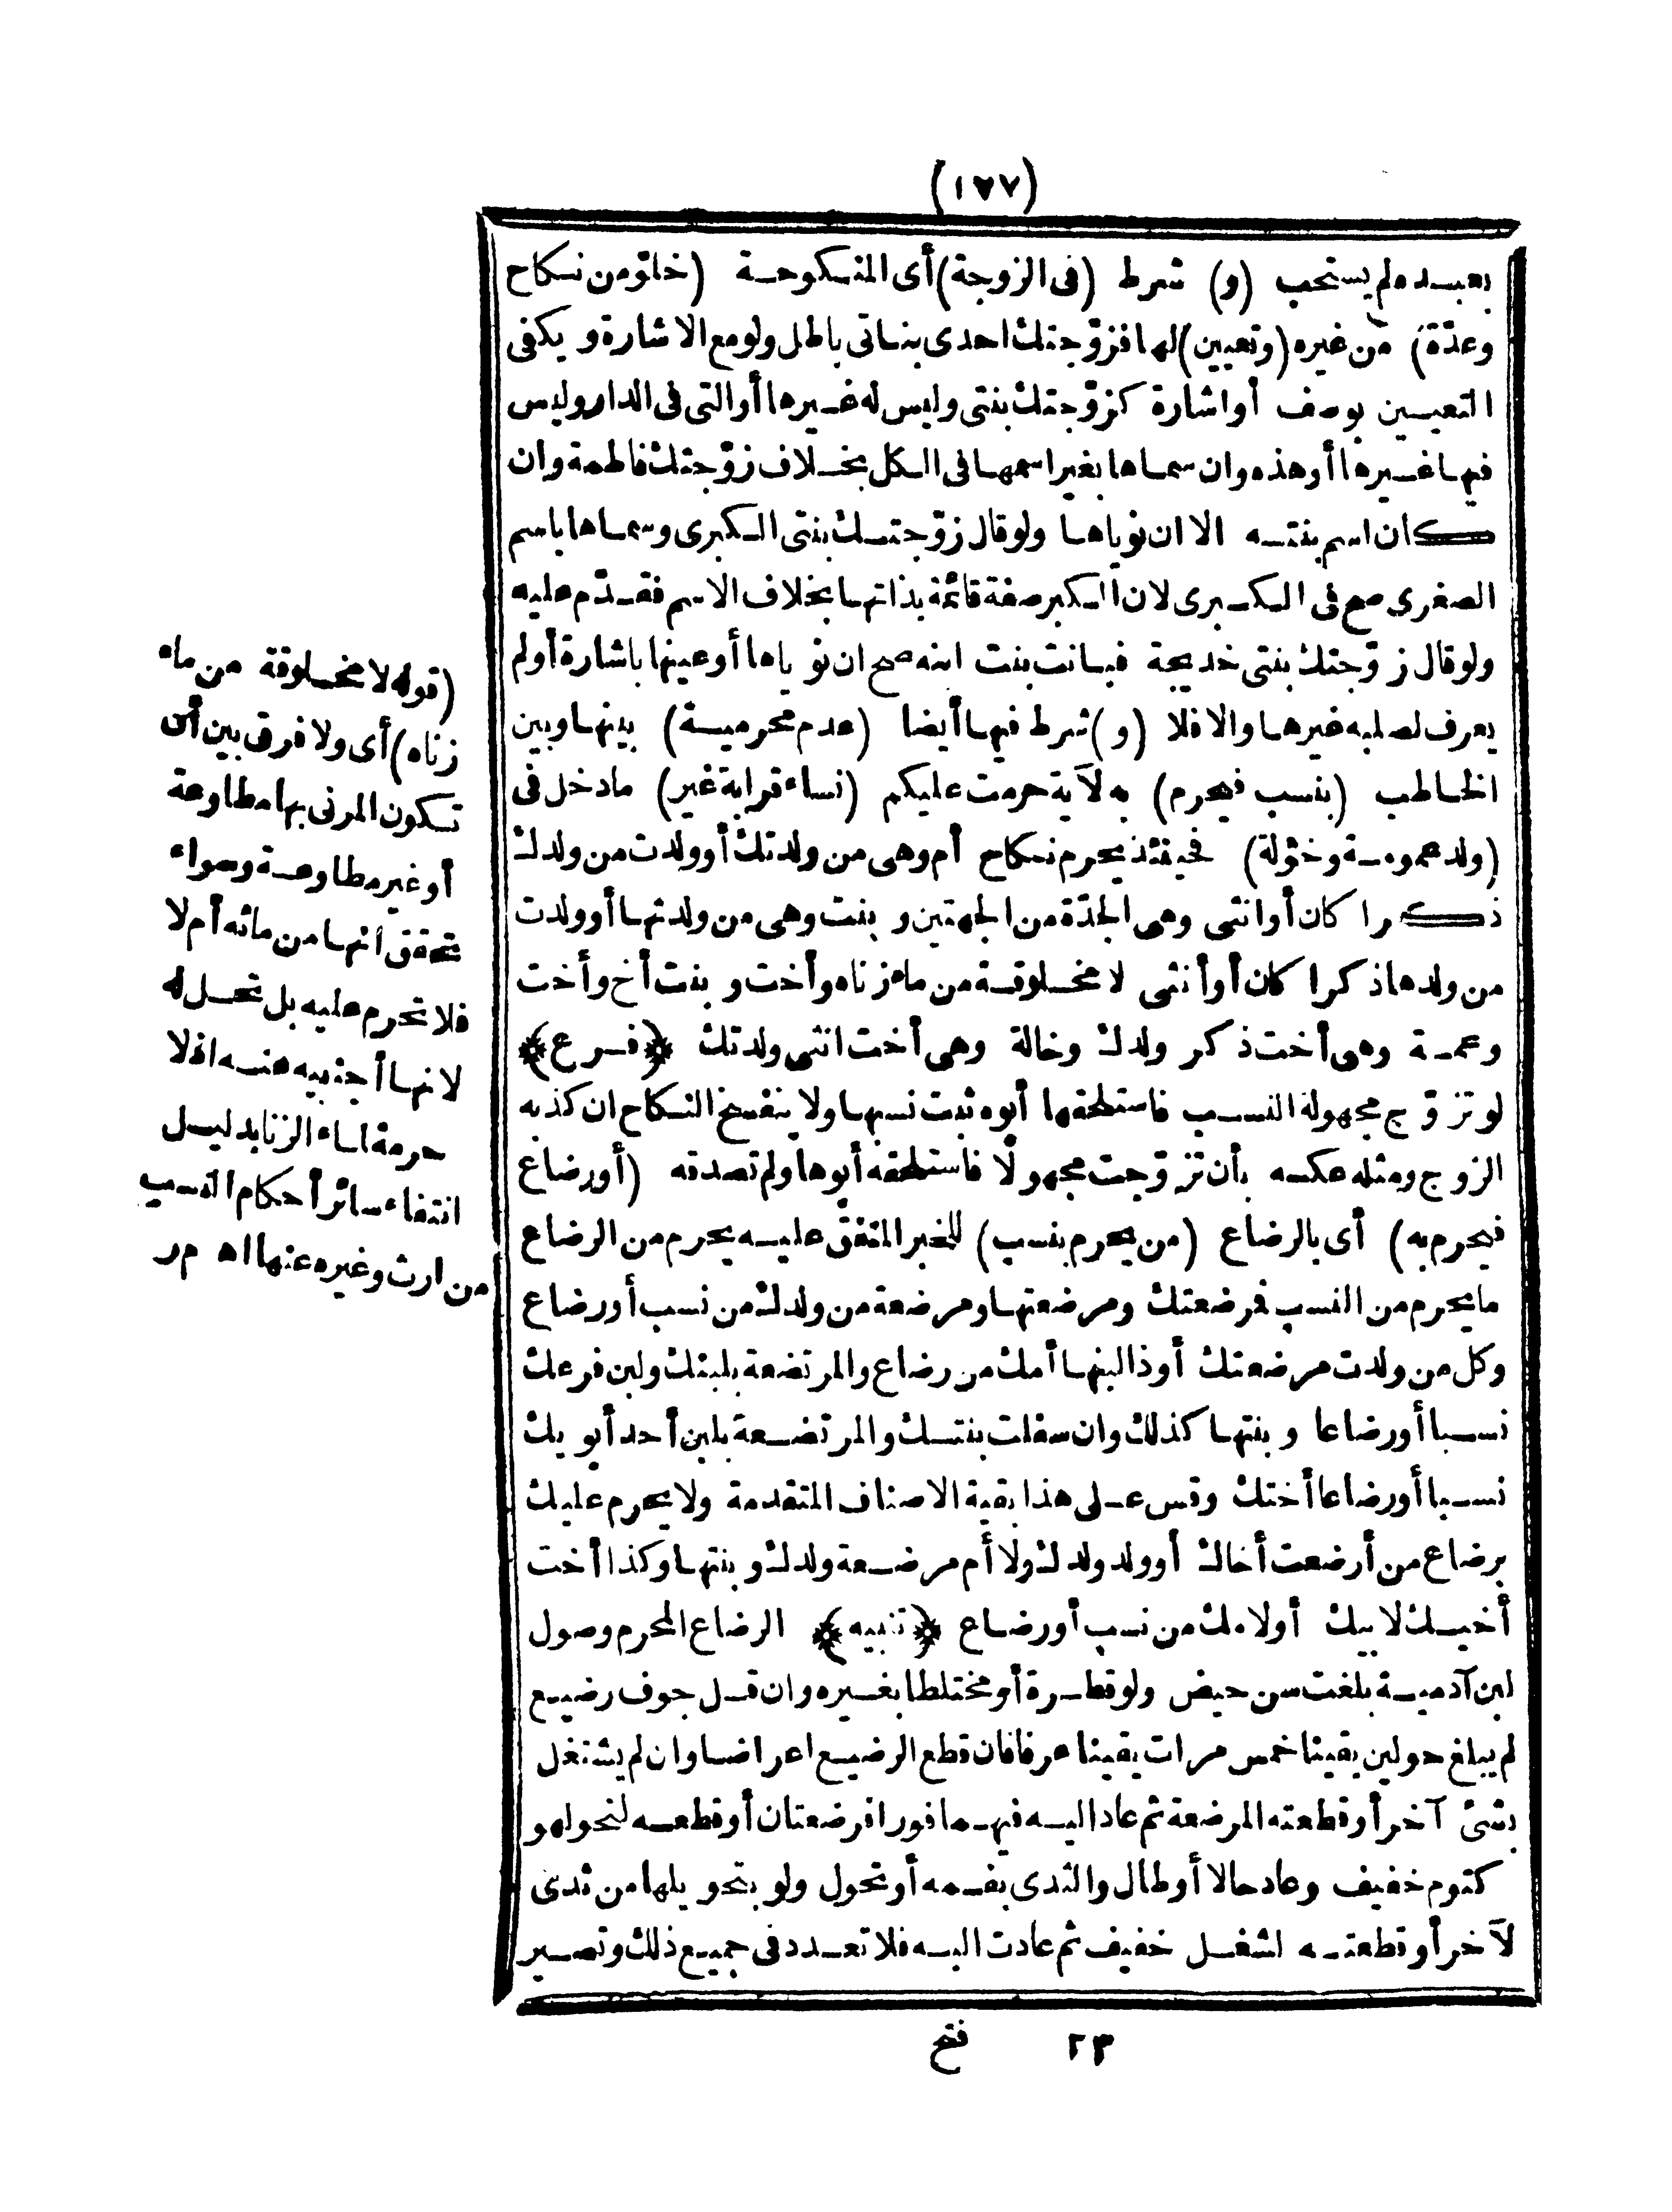 (١٧٧)
بعبده لم يستحب (و) شرط (فى الزوجة) أى المنكوحة (خلوّ من نكاح
وعدّة) من غيره (وتعيين) لها فزوّجتك احدى بناتى باطل ولو مع الاشارة ويكفى
التعيين بوصف أو اشارة كزوّجتك بنتى وليس له غيرها أو التى فى الدار وليس
فيها غيرها أو هذه وان سماها بغير اسمها فى الكل بخلاف زوّجتك فاطمة وان
كان اسم بنته الا ان نوياها ولو قال زوّجتك بنتى الكبرى وسماها باسم
الصغرى صح فى الكبرى لان الكبر صفة قائمة بذاتها بخلاف الاسم فقدّم عليه
ولو قال زوّجتك بنتى خديجة فبانت بنت ابنه صح ان نوياها أو عينها باشارة أو لم
يعرف لصلبه غيرها والا فلا (و) شرط فيها أيضا (عدم محرمية) بينها وبين
الخاطب (بنسب فيحرم) به لآية حرمت عليكم (نساء قرابة غير) ما دخل فى
(ولد عمومة وخئولة) فحينئذ يحرم نكاح أم وهى من ولدتك أو ولدت من ولدك
ذكرا كان أو انثى وهى الجدّة من الجهتين وبنت وهى من ولدتها أو ولدت
من ولدها ذكرا كان أو أنثى لا مخلوقة من ماء زناه وأخت وبنت أخ وأخت
وعمة وهى أخت ذكر ولدك وخالة وهى أخت انثى ولدتك ﴿فرع﴾
لو تزوّج مجهولة النسب فاستلحقها أبوه ثبت نسبها ولا ينفسخ النكاح ان كذبه
الزوج ومثله عكسه بأن تزوّجت مجهولا فاستلحقه أبوها ولم تصدقه (أو رضاع
فيحرم به) أى بالرضاع (من يحرم بنسب) للخبر المتفق عليه يحرم من الرضاع
ما يحرم من النسب فمرضعتك ومرضعتها ومرضعة من ولدك من نسب أو رضاع
وكل من ولدت مرضعتك أو ذا لبنها أمك من رضاع والمرتضعة بلبنك ولبن فرعك
نسبا أو رضاعا وبنتها كذلك وان سفلت بنتك والمرتضعة بلبن أحد أبويك
نسبا أو رضاعا أختك وقس على هذا بقية الاصناف المتقدمة ولا يحرم عليك
برضاع من أرضعت أخاك أو ولد ولدك ولا أم مرضعة ولدك وبنتها وكذا أخت
أخيك لابيك أو لامك من نسب أو رضاع ﴿تنبيه﴾ الرضاع المحرم وصول
لبن آدمية بلغت سن حيض ولو قطرة أو مختلطا بغيره وان قل جوف رضيع
لم يبلغ حولين يقينا خمس مرات يقينا عرفا فان قطع الرضيع اعراضا وان لم يشتغل
بشئ آخر أو قطعته المرضعة ثم عاد اليه فيهما فورا فرضعتان أو قطعه لنحو لهو
كنوم خفيف وعاد حالا أو طال والثدى بفمه أو تحول ولو بتحويلها من ثدى
لآخر أو قطعته لشغل خفيف ثم عادت اليه فلا تعدد فى جميع ذلك وتصير
(قوله لا مخلوقة من ماء
زناه) أى ولا فرق بين أن
تكون المزنى بها مطاوعة
أو غير مطاوعة وسواء
تحقق انها من مائه أم لا
فلا تحرم عليه بل تحل له
لانها أجنبيه عنه اذ لا
حرمة لماء الزنا بدليل
انتفاء سائر أحكام النسب
من ارث وغيره عنها اه م ر
٢٣ فتح